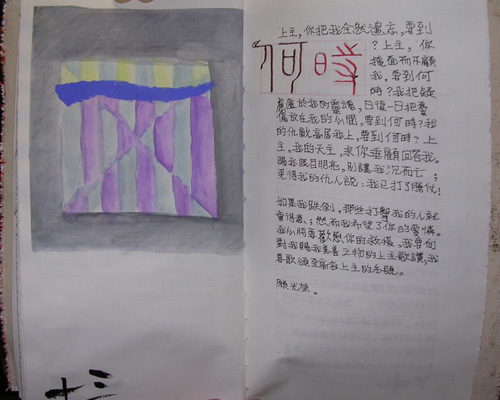 十三
上主，你把我全然遺忘，要到
何時
？上主，你
掩面而不顧
我，要到何
時？我把疑
慮於我的靈魂，日復一日把憂
傷放在我的心間，要到何時？我
的仇敵高居我上，要到何時？上
主，我的天主，求你垂顧回答我。
賜我眼目明亮，別讓我沉而亡；
免得我的仇人說：我已打了勝仗！
如果我跌倒，那些打擊我的人就
會得意；然而我希望了你的愛憐。
我心所要歡愉你的救援。我要向
對我賜我美善之物的上主歌讚，我
要歌頌至高者上主的名號。
願光榮。